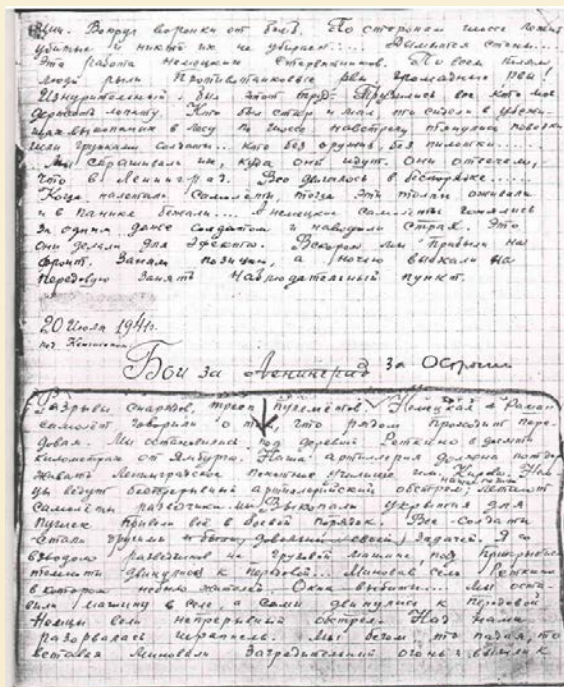 Вокруг воронки от бомб. По сторонам шоссе лежат
убитые и никто их не убирает.... Дымятся станц...
Эта работа немецких стервятников. По всем полям
люди рыли противотанковые рвы громадные рвы!
Изнурительный был этот труд. Трудились все кто мог
держать лопату. Кто был стар и мал те сидели в убежи-
щах выкопаных в лесу. По шоссе навстречу тянулись повозки
шли грузовики солдаты... кто без оружия, без пилотки......
...Мы спрашивали их, куда они идут. Они отвечали,
что в Ленинград. Все двигалось в беспорядке.....
Когда налетали самолеты, тогда эти толпы оживали
и в панике бежали.... А немецкие самолеты гонялись
за одним даже солдатом и наводили страх. Это
они делали для эффекта. Вскором мы прибыли на
фронт. Заняли позиции, а ночью выехали на
передовую занять наблюдательный пункт.
20 Июля 1941г.
под
Бои за Ленинград за Острыми
Разрывы снарядов, треск пулеметов. Немецкая
самолет говорили о том, что рядом проходит пере-
довая. Мы остановились под деревней Реткино в десяти
километрах от Ямбурга. Наша артиллерия должна поддер-
живать Ленинградское пехотное училище им. Кирова. Нем-
цы ведут беспрерывный артиллерийский обстрел; летают
самолеты разведчики. Мы выкопали укрытия для
пушек привели всё в боевой порядок. Все солдаты
стали друзьями задачей. Я со
взводом разведчиков на грузовой машине, под прикрытием
темноты двинулись к передовой... Миновав село Реткино
в котором небыло жителей. Окна выбиты... Мы оста-
вили машину в селе, а сами двинулись к передовой
Немцы вели непрерывный обстрел. Над нами
разорвалась шрапнель. Мы бегом, то падая, то
вставая миновали заградительный огонь и вышли к